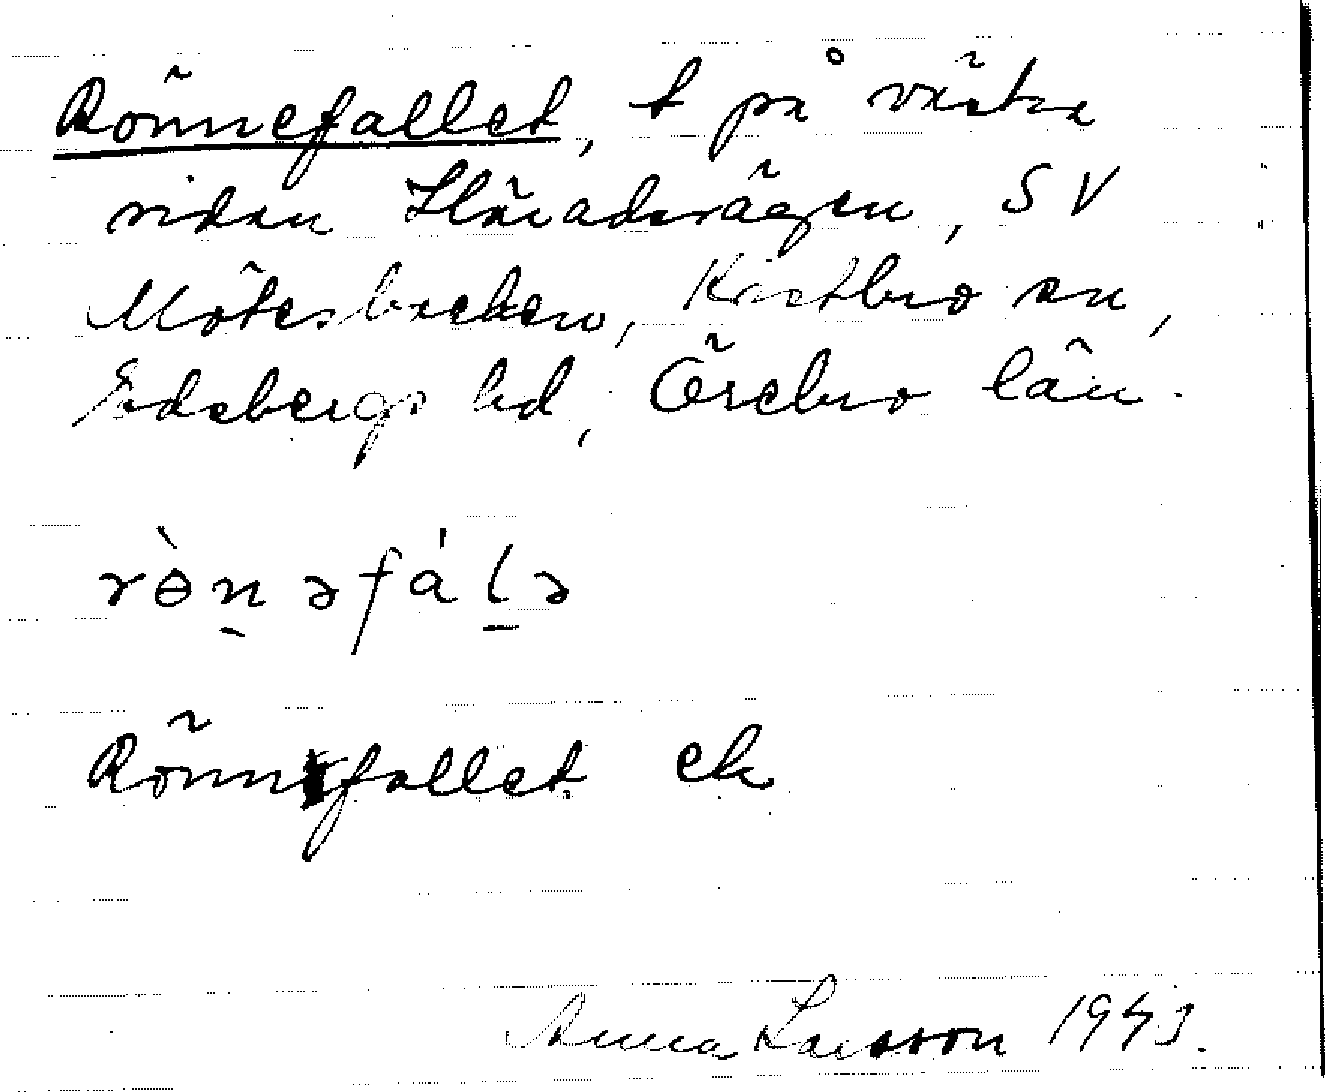 Rönnefallet, t på västra
sidan Häradsvägen, SV
Mötesbacken, Knistbro sn,
Edsbergs hd, Örebro län.
rɵ̀n̲əfál̲ə
Rönnefallet ek
Anna Larsson 1943.